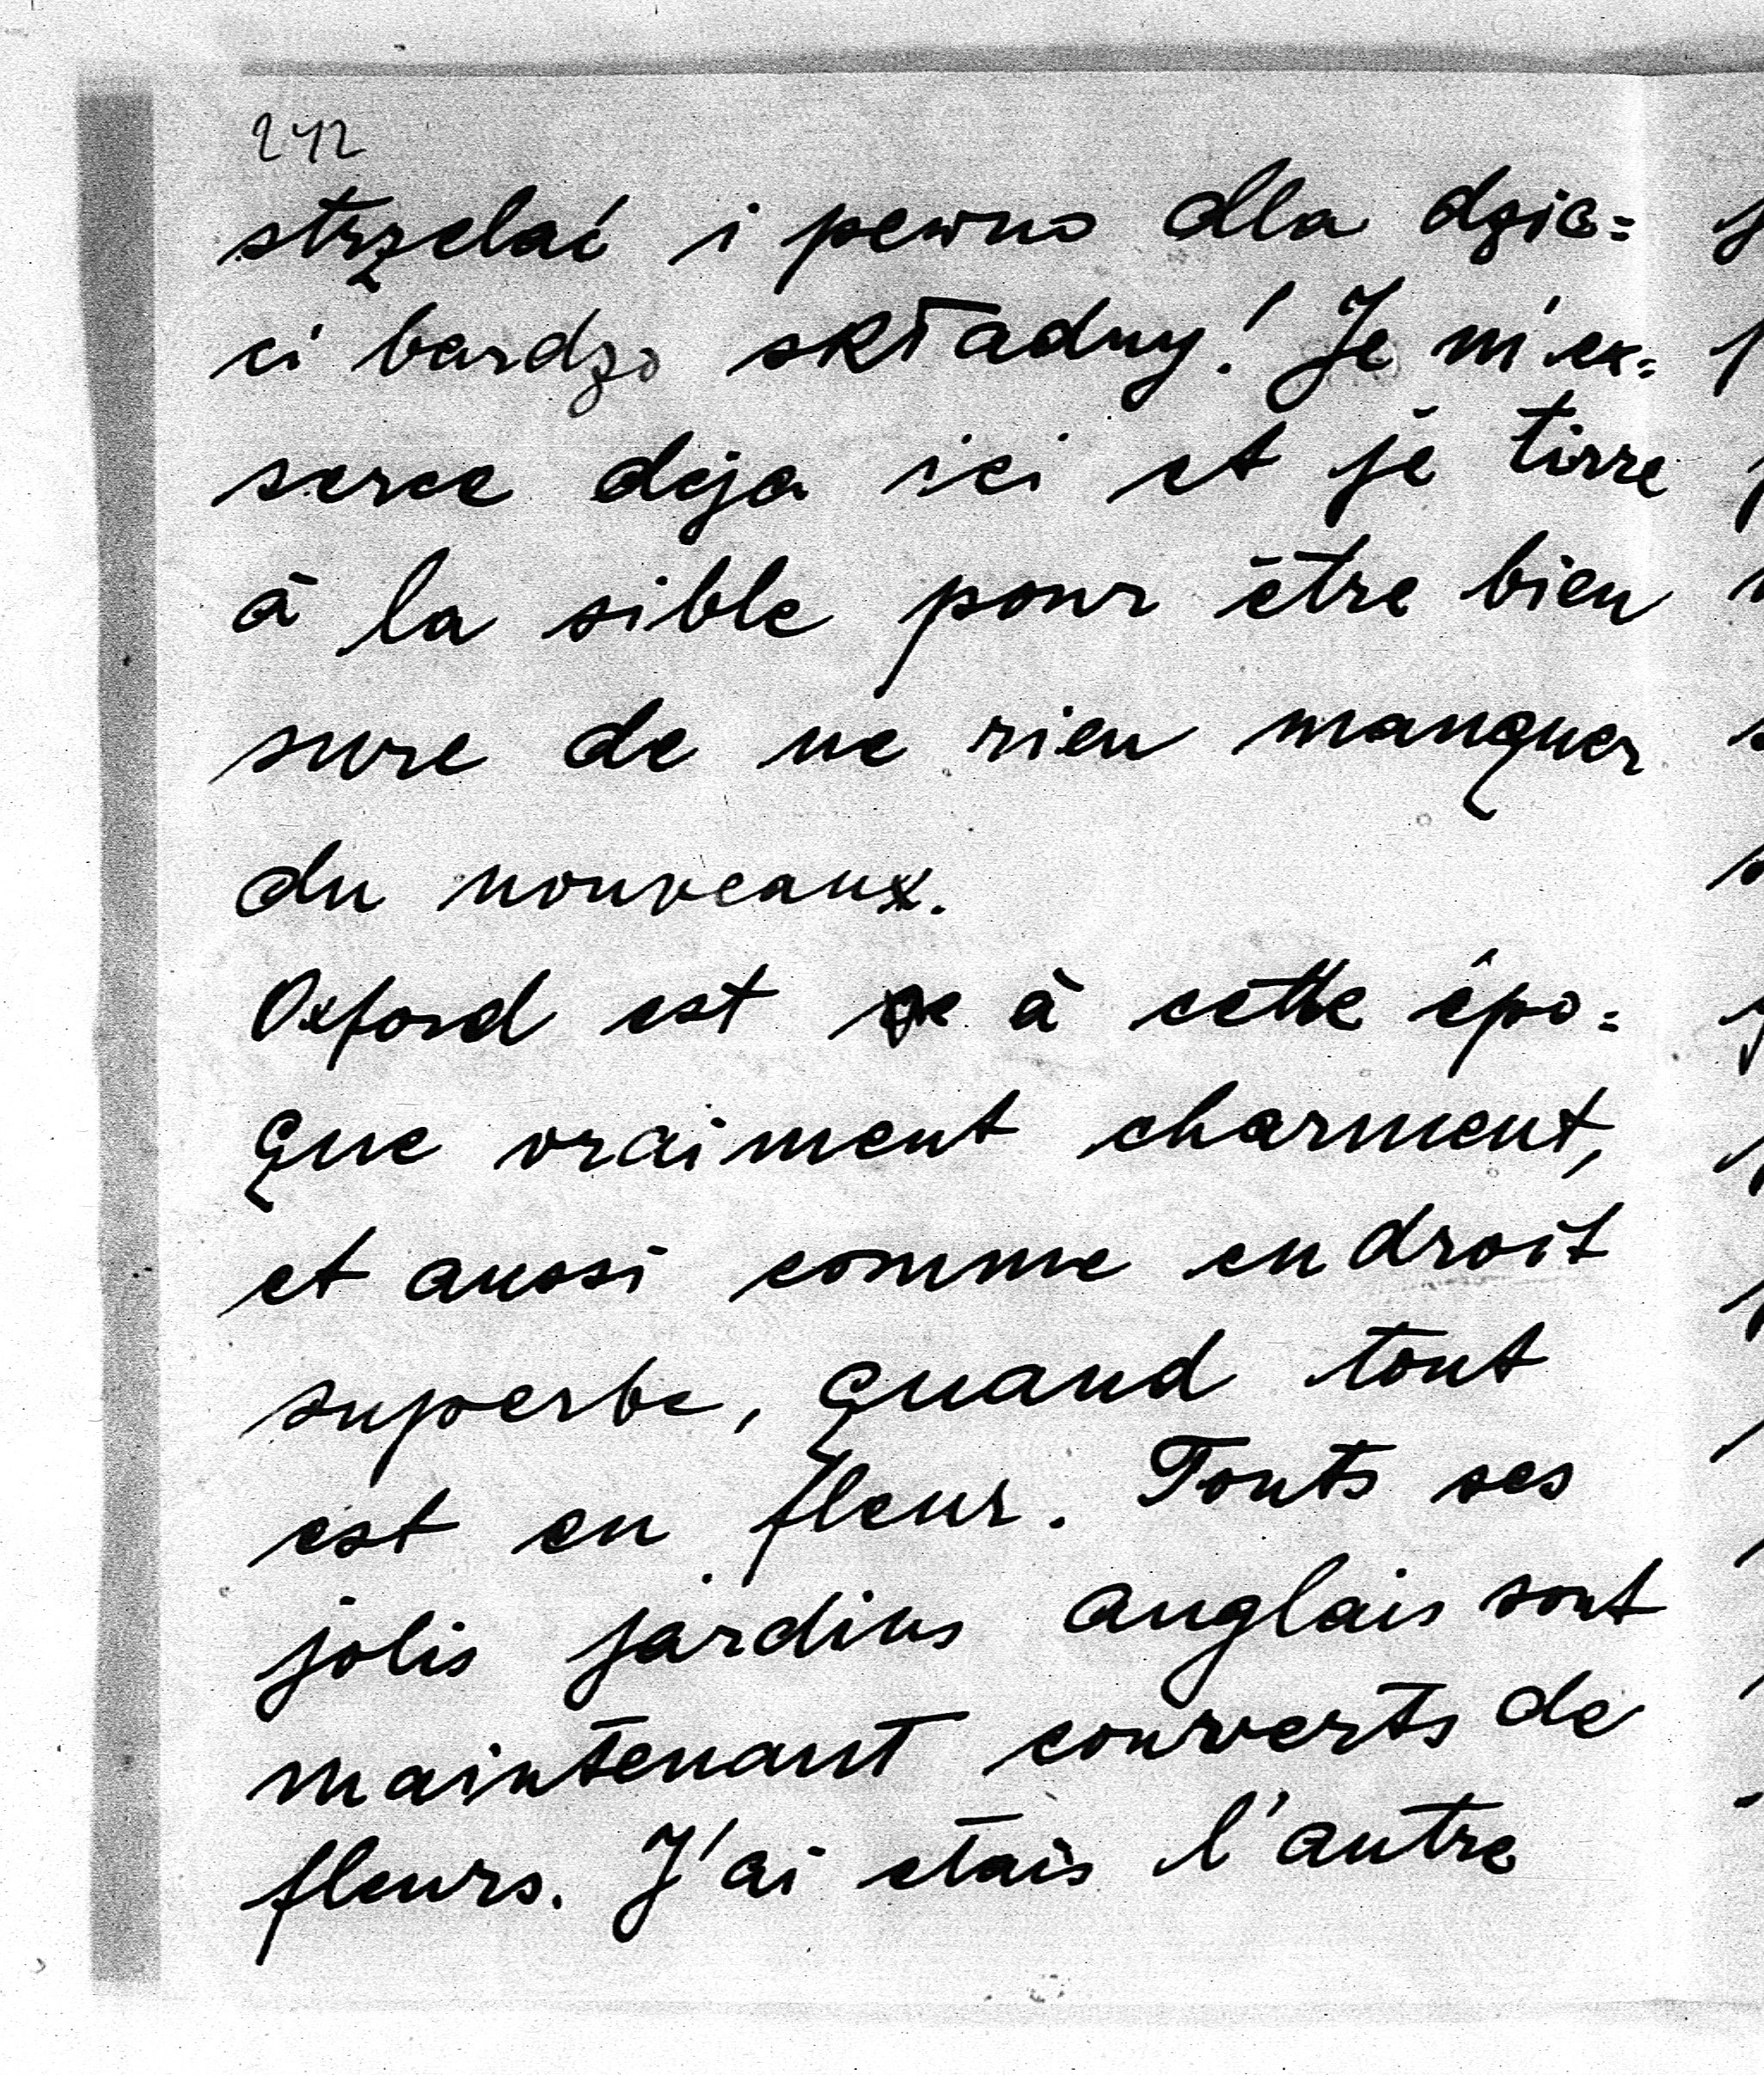 242
strzelać i pewno dla dzie=
ci bardzo składny! Je m'ex=
serce deja ici et je tirre
à la sible pour être bien
sure de ne rien manquer
du nouveaux.
Oxford est à cette épo=
que vraiment charment,
et aussi comme endroit
superbe, quand tout
est en fleur. Touts ses
jolis jardins anglais sont
maintenant couverts de
fleurs. J'ai etais l'autre